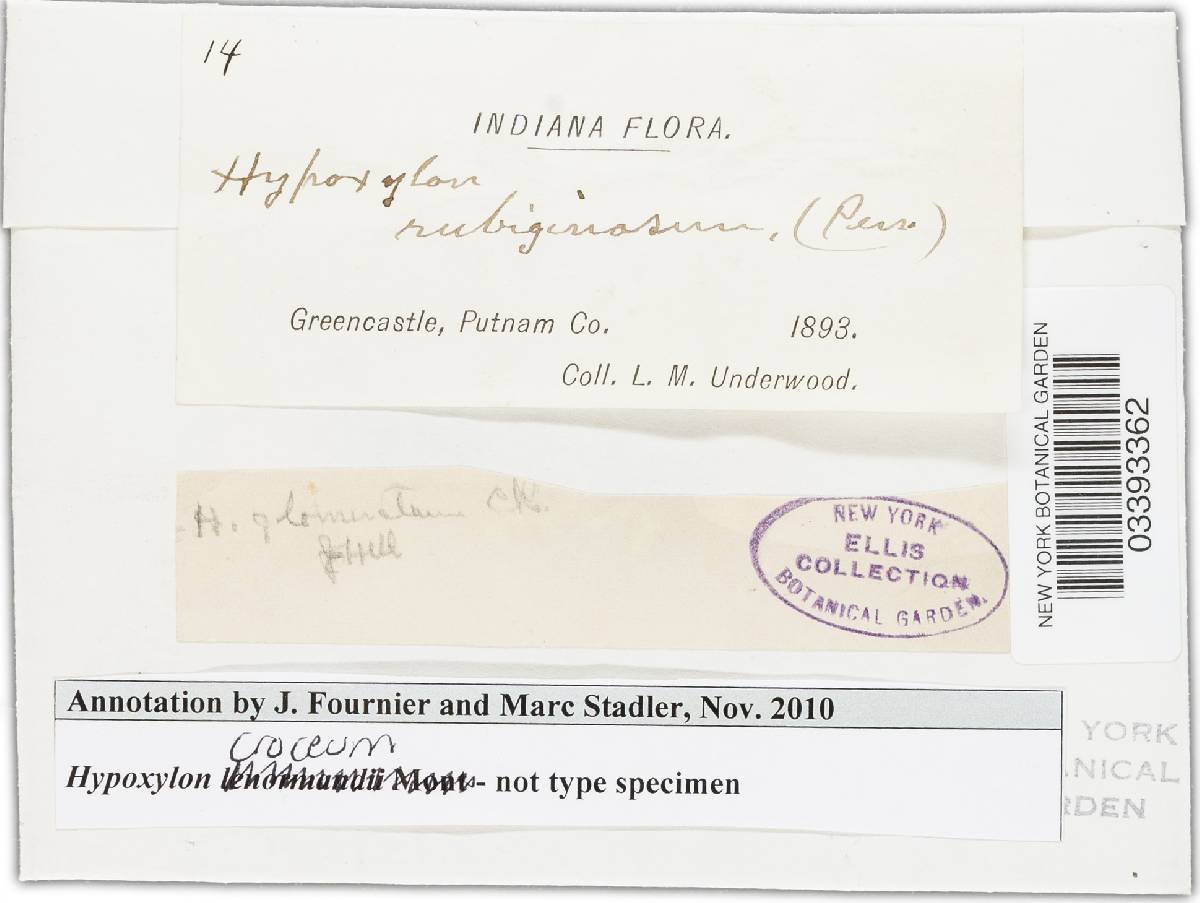 14
INDIANA FLORA.
Hypoxylon
rubiginosum, (Pers.)
Greencastle, Putnam Co. 1893.
Coll. L. M. Underwood.
H. glomeratum CK.
NEW YORK
ELLIS
COLLECTION
BOTANICAL GARDEN.
NEW YORK BOTANICAL GARDEN
03393362
Annotation by J. Fournier and Marc Stadler, Nov. 2010
croceum
Hypoxylon lenormandii Mont - not type specimen
YORK
NICAL
RDEN